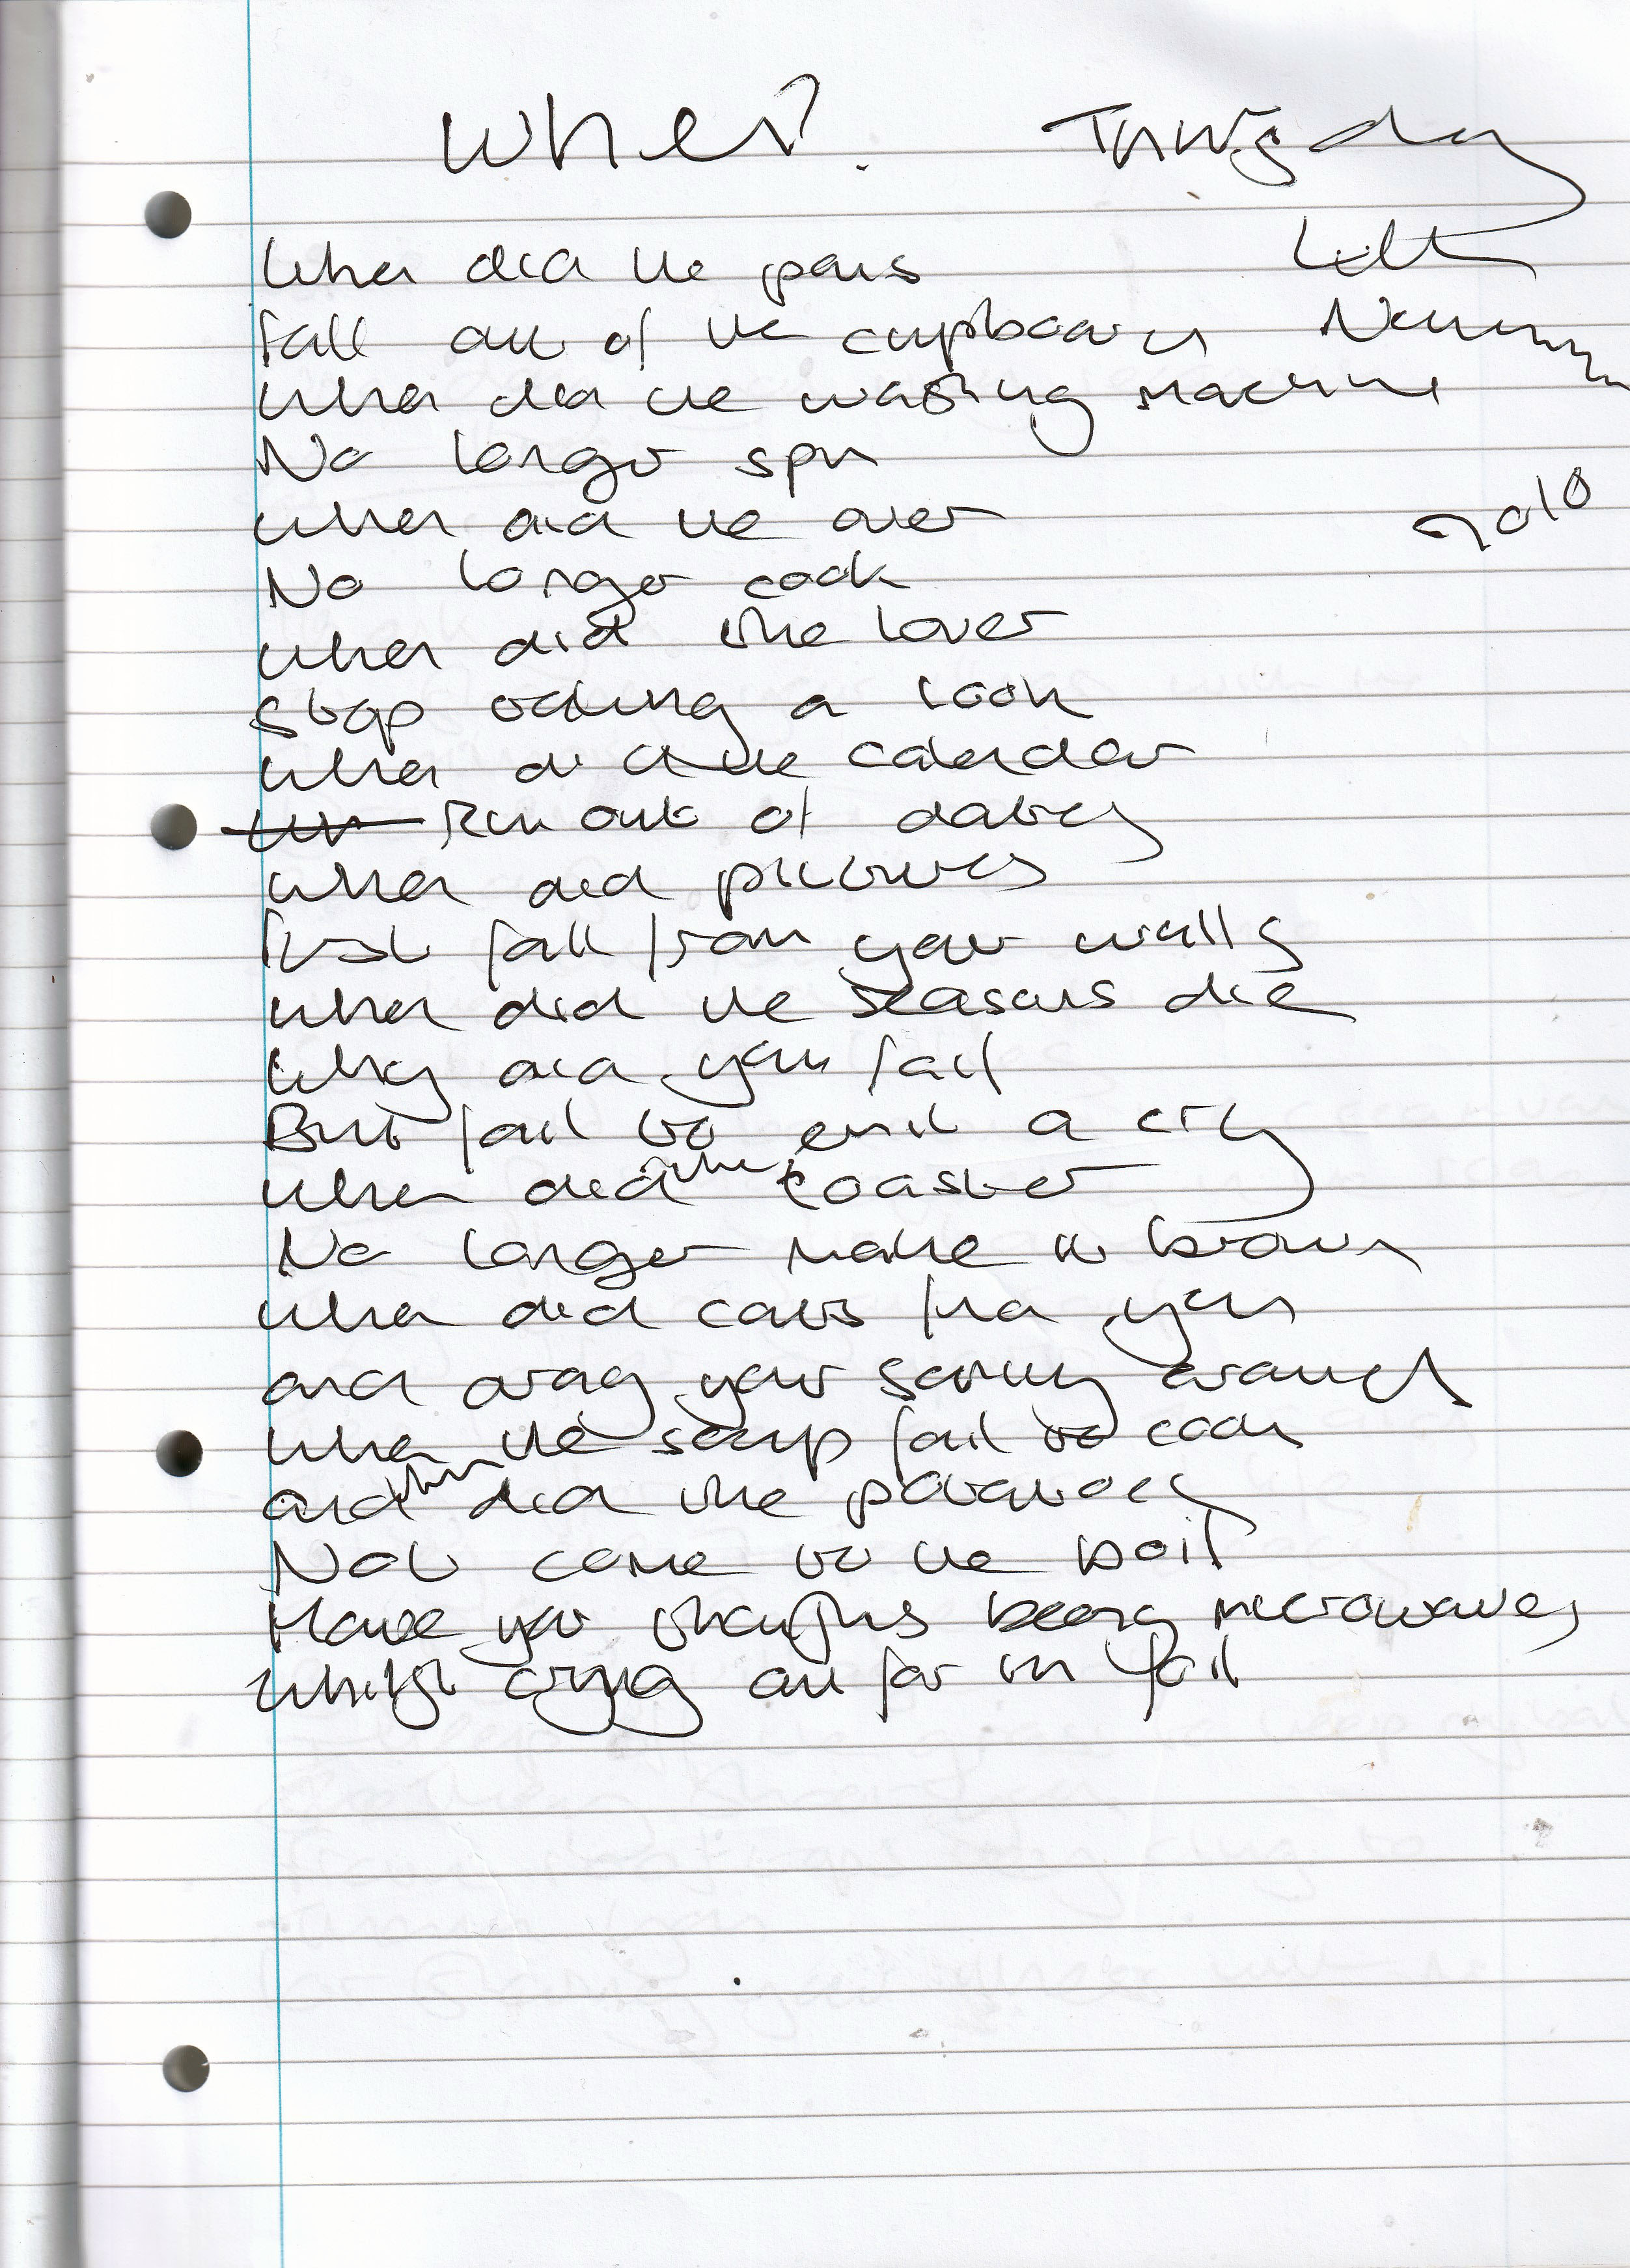 When? Thursday
When did the pans
11th
fall out of the cupboard November
When did the washing machine
No longer spin
2010
When did the oven
No longer cook
When did the lover
Stop eating a look
When did the calendar
Run out of dates
When did pictures
first fall from your walls
When did the seasons die
Why did you fail
But fail to emit a cry
When did the toaster
No longer make it brown
When did cars find you
and drag your sorry around
When the soup fail to cook
and when did the
Not come to the boil
Have your thoughts been microwaved
whilst crying out for in foil